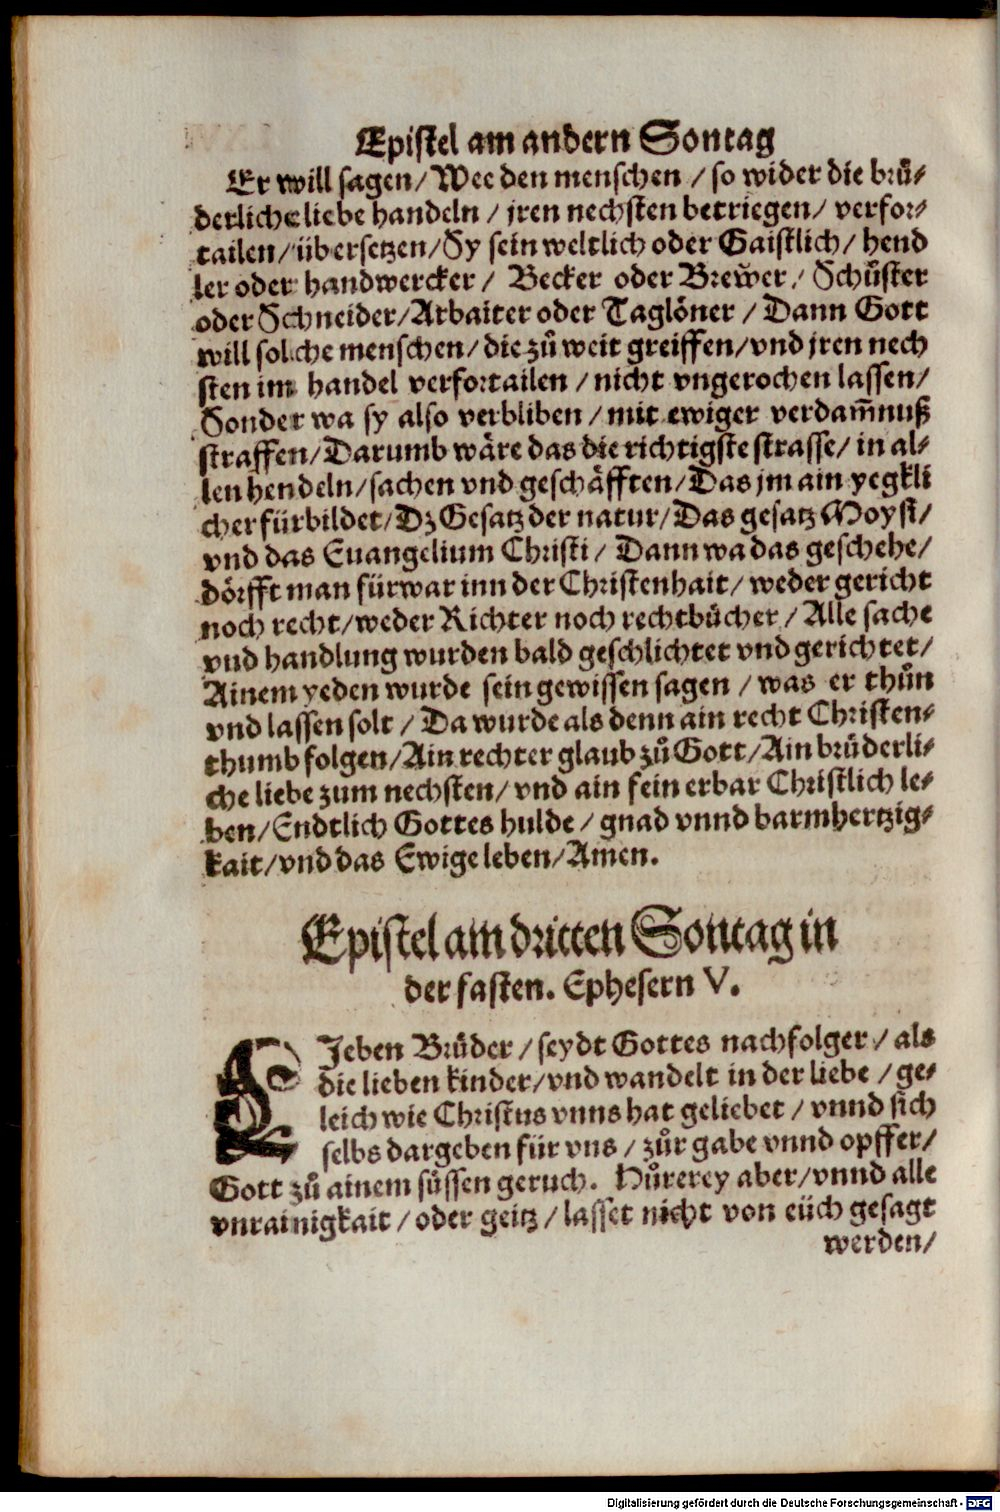 Epistel am andern Sontag
Er will sagen/ Wee den menschen / so wider die brü-
derliche liebe handeln / jren nechsten betriegen/ verfor-
tailen/ übersetzen/ Sy sein weltlich oder Gaistlich/ hend
ler oder handwercker / Becker oder Brewer / Schůster
oder Schneider/ Arbaiter oder Taglöner / Dann Gott
will solche menschen/ die zů weit greiffen/ vnd jren nech
sten im handel verfortailen / nicht vngerochen lassen/
Sonder wa sy also verbliben / mit ewiger verdam̄nuß
straffen/ Darumb wäre das die richtigste strasse/ in al-
len hendeln/ sachen vnd geschäfften/ Das jm ain yegkli
cher fürbildet/ Dz Gesatz der natur/ Das gesatz Moysi/
vnd das Euangelium Christi / Dann wa das geschehe/
dörfft man fürwar inn der Christenhait/ weder gericht
noch recht/ weder Richter noch rechtbücher / Alle sache
vnd handlung wurden bald geschlichtet vnd gerichtet/
Ainem yeden wurde sein gewissen sagen / was er thůn
vnd lassen solt / Da wurde als denn ain recht Christen-
thumb folgen/ Ain rechter glaub zů Gott/ Ain brüderli-
che liebe zum nechsten/ vnd ain fein erbar Christlich le-
ben/ Endtlich Gottes hulde / gnad vnnd barmhertzig-
kait/ vnd das Ewige leben/ Amen.
Epistel am dritten Sontag in
der fasten. Ephesern V.
LJeben Brüder / seydt Gottes nachfolger / als
die lieben kinder/ vnd wandelt in der liebe / ge-
leich wie Christus vnns hat geliebet / vnnd sich
selbs dargeben für vns / zůr gabe vnnd opffer/
Gott zů ainem süssen geruch. Hůrerey aber/ vnnd alle
vnrainigkait / oder geitz / lasset nicht von eüch gesagt
werden/
Digitalisierung gefördert durch die Deutsche Forschungsgemeinschaft - DFG